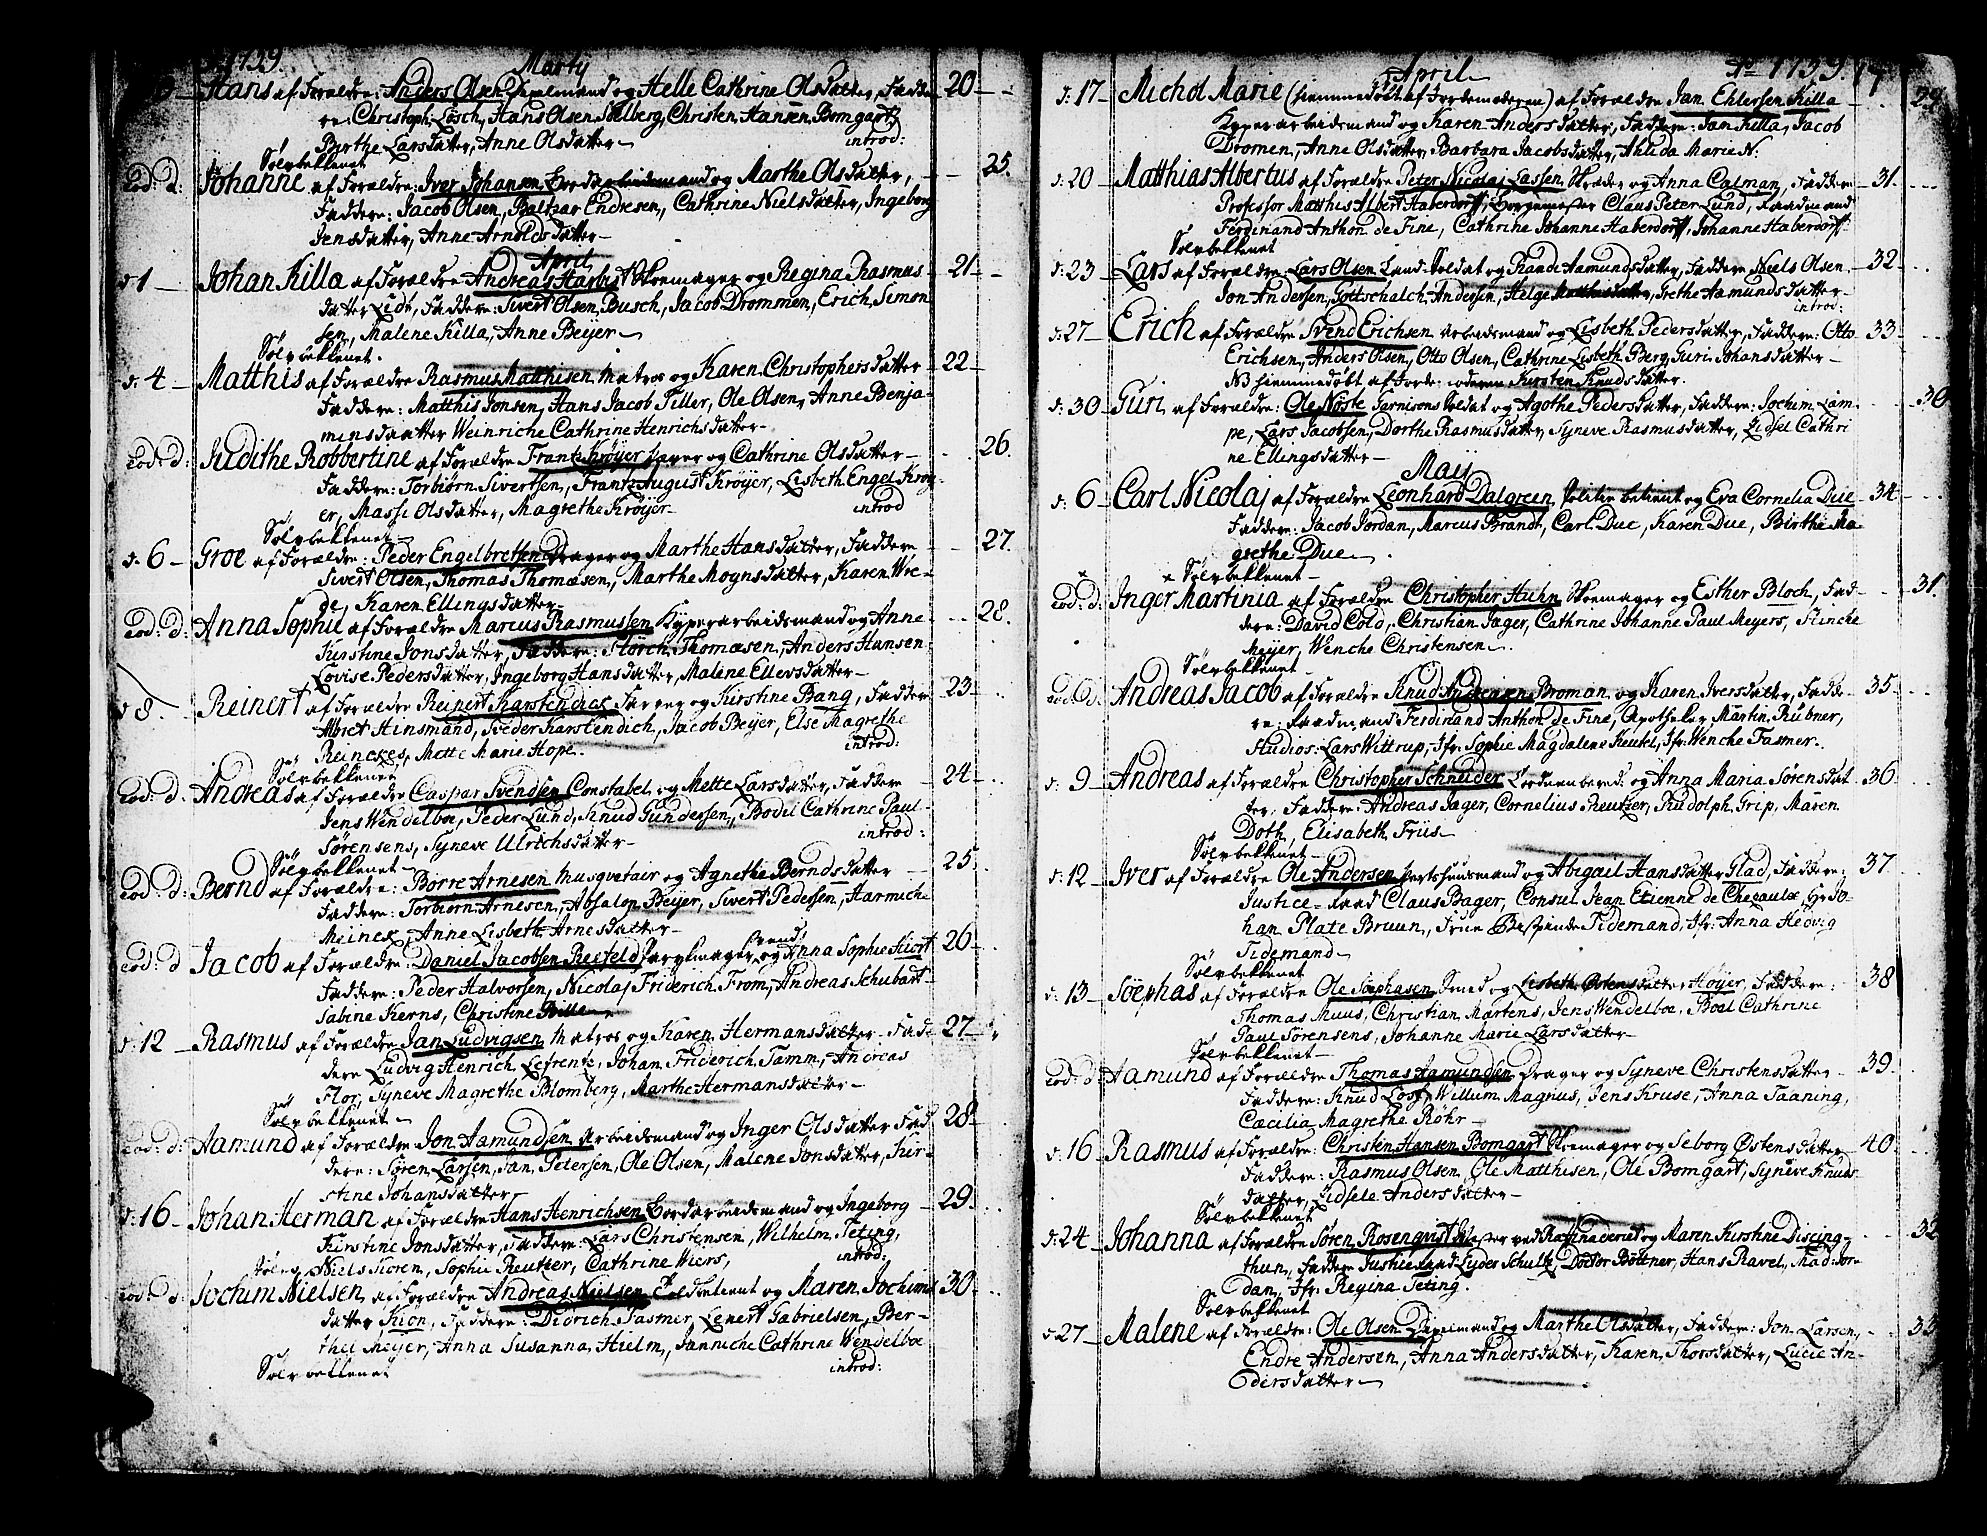 1759.
Marty
Hans af Forældre: Anders Olsen og Helle Cathrine Olsdatter, Fadde- 20
re: Christoph: Lösch, Hans Olsen Sælberg, Christen Hansen Bomgart
Birthe Larsdatter, Anne Olsdatter
introd:
Sölvbekkenet
Eod: d: Johanne af Forældre: Iver Johansen og Marthe Olsdatter, 25.
Faddere: Jacob Olsen, Baltzar Endresen, Cathrine Nielsdatter, Ingeborg
Jensdatter, Anne Arnoldsdatter
April
d: 1 Johan Killa af Forældre Andreas Harbist Skoemager og Regina Rasmus- 21
datter Lidt, Faddere: Sivert Olsen Busch, Jacob Drommen, Erich Simon
sen, Malene Killa, Anne Beyer
Sölvbekkenet.
d: 4 Matthis af Forældre Rasmus Matthisen Matros og Karen Christophersdatter 22
Faddere: Matthis Jonsen, Hans Jacob Tiller, Ole Olsen, Anne Benja-
minsdaatter Weinriche Cathrine Henrichsdatter
Eod: d: Judithe Robbertine af Forældre Frantz Kröyer og Cathrine Olsdatter 26.
Faddere: Torbiørn Sivertsen, Frantz August Kröyer, Lisbeth Engel Kröy-
er, Massi Olsdatter, Magrethe Kröyer
introd
Sölvbekkenet
d: 6 Groe af Forældre: Peder Engelbretsen Drager og Marthe Hansdatter, Faddere 27.
Sivert Olsen, Thomas Thomæsen, Marthe Moynsdatter, Karen Wre-
de, Karen Ellingsdatter
Eod: d: Anna Sophie af Forældre Marcus Rasmussen Kyperarbeidsmand og Anne 28.
Kirstine Jonsdatter, Faddere: Störch Thomæsen, Anders Hansen
Lovise Pedersdatter, Ingeborg Hansdatter, Malene Ellersdatter
d 8. Reinert af Forældre Reinert Karstendick Farver og Kirstine Bang, Faddere 23
Albret Hinsmand, Karstendich, Jacob Beyer, Else Magrethe
Reinckes, Mette Marie Hope.
introd:
Sölvbekkenet
Eod: d: Andreas af Forældre Caspar Svendsen Constabel og Mette Larsdatter, Faddere 24
Jens Wendelboe, Peder Lund, Knud Gundersen, Bodil Cathrine Paul
Sørensens, Syneve Ulrichsdatter
introd:
Sölvbekkenet
Eod: d: Bernd af Forældre: Börre Arnesen Musqvetair og Agnethe Berndsdatter 25.
Faddere: Torbiørn Arnesen, Absalon Beyer, Sivert Pedersen, Harmiche
Meinex, Anne Lisbeth Arnesdatter
Eod: d Jacob af Forældre: Daniel Jacobsen Resfeld og Anna Sophie Kiort 26
Faddere: Peder Halvorsen, Nicolaj Friderich From, Andreas Schubart
Sabine Kerns, Christine Bille
d: 12 Rasmus af Forældre Jan Ludvigsen Matros og Karen Hermansdatter. Fad- 27
dere Ludvig Henrich Lefrentz, Johan Friderich Tamm, Andreas
Flor, Syneve Magrethe Blomberg, Marthe Hermansdatter
Sölvbekkenet
Eod: d: Aamund af Forældre Jon Aamundsen Arbeidsmand og Inger Olsdatter Fad 28
dere: Sören Larsen, Jan Petersen, Ole Olsen, Malene Jonsdatter, Kir-
stine Johansdatter
d: 16 Johan Herman af Forældre Hans Henrichsen og Ingeborg 29.
Kirstine Jonsdatter, Faddere: Lars Christensen, Wilhelm Teting,
Niels Koren, Sophie Reutzer, Cathrine Wiers,
introd:
Eod: d: Jochim Nielsen af Forældre Andreas Nielsen og Maren Jochims 30
datter Kion, Faddere: Didrich Fasmer, Lenert Gabrielsen, Ber-
thel Meyer, Anna Susanna Hielm, Janniche Cathrine Wendelboe
introd:
Sölvbekkenet
April
Ao 1759.
d: 17 Michol Marie (hiemmedöbt af Jordemoderen) af Forældre Jan Ehlersen Killa 29
Kyperarbeidsmand og Karen Andersdatter, Faddere: Jan Killa, Jacob
Dromen, Anne Olsdatter, Barbara Jacobsdatter, Ahlida Marie N:
d: 20 Matthias Albertus af Forældre Peter Nicolai Lassen og Anna Calman, Faddere 31.
Professor Matthis Albert Haberdorff, Borgemester Claus Peter Lund, Raadmand
Ferdinand Anthon de Fine, Cathrine Johanne Haberdorff, Johanne Haberdorff
Sölvbekkenet
d: 23 Lars af Forældre: Lars Olsen Land Soldat og Randi Aamundsdatter, Faddere Niels Olsen 32
Jon Andersen, Gottschalch Andersen, Helge Matthisdatter, Grethe Aamundsdatter
introd:
d: 27 Erich af Forældre Svend Erichsen Arbeidsmand og Lisbeth Pedersdatter, Faddere: Otto 33
Erichsen, Anders Olsen, Otto Olsen, Cathrine Lisbeth Berg, Guri Johansdatter
NB hiemmedöbt af Kirsten Knudsdatter.
d: 30 Guri af Forældre: Ole Nöste Garnisons Soldat og Agothe Pedersdatter, Faddere: Jochim Lam- 30
pe, Lars Jacobsen, Dorthe Rasmusdatter, Syneve Rasmusdatter, Lidsel Cathri
ne Ellingsdatter
Maij
d: 6 Carl Nicolaj af Forældre Leonhard Dalgreen Politie betient og Eva Cornelia Due 34
Faddere: Jacob Jordan, Marcus Brandt, Carl Due, Karen Due, Birthe Ma-
grethe Due
Sölvbekkenet
Eod: d: Inger Martinia af Forældre Christopher Huhn Skoemager og Esther Bloch, Fad- 31.
dere: David Cold, Christian Jager, Cathrine Johanne Paul Meyers, Hincke
Meyer, Wenche Christensen
Sölvbekkenet
Eod: d: Andreas Jacob af Forældre Knud Andreasen Broman og Karen Iversdatter, Fadde- 35
re: Raadmand Ferdinand Anthon de Fine, Apotheker Martin Rübner,
Studios: Lars Wittrup, Jfr: Sophie Magdalene Keutel, Jfr: Wenche Fasmer.
d: 9 Andreas af Forældre Christopher Schneider og Anna Maria Sørensdat 36
ter. Faddere: Andreas Jager, Cornelius Reutzer, Rudolph Grip, Maren
Doth, Elisabeth Friis
Sölvbekkenet
d: 12 Iver af Forældre Ole Andersen og Abigail Hansdatter Glad, Faddere: 37
Justice-Raad Claus Bager, Consul Jean Etienne de Chezaulx, Hr Jo-
han Plate Bruun, Frue Tidemand, Jfr: Anna Hedvig
Tidemand
Sölvbekkenet
d: 13 Söephas af Forældre Ole Söephasen Smed og Lisbeth Östensdatter Höyer, Faddere: 38
Thomas Muus, Christian Martens, Jens Wendelboe, Boel Cathrine
Paul Sørensens, Johanne Marie Larsdatter
Sölvbekkenet
Eod: d: Aamund af Forældre Thomas Aamundsen Drager og Syneve Christensdatter 39.
Faddere: Knud Losf, Willum Magnus, Jens Kruse, Anna Taaning,
Cæcilia Magrethe Röhr
d: 16 Rasmus af Forældre: Christen Hansen Bomgart Skoemager og Seborg Østensdatter 40.
Faddere: Rasmus Olsen, Ole Matthisen, Ole Bomgart, Syneve Knuds
datter, Lidsele Andersdatter
Sölvbekkenet
d: 24 Johanna af Forældre Sören Rosenqvist Mester ved Raffinaderiet og Maren Kirstine Discing- 32
thun, Faddere Justice Raad Eyder Schultz, Doctor Böttner, Hans Ravel, Mad: Jor-
dan, Jfr: Regina Teting.
Sölvbekkenet
d: 27 Malene af Forældre: Ole Olsen og Marthe Olsdatter, Faddere: Jon Larsen, 33
Endre Andersen, Anna Andersdatter, Karen Thorsdatter, Lucie An-
dersdatter